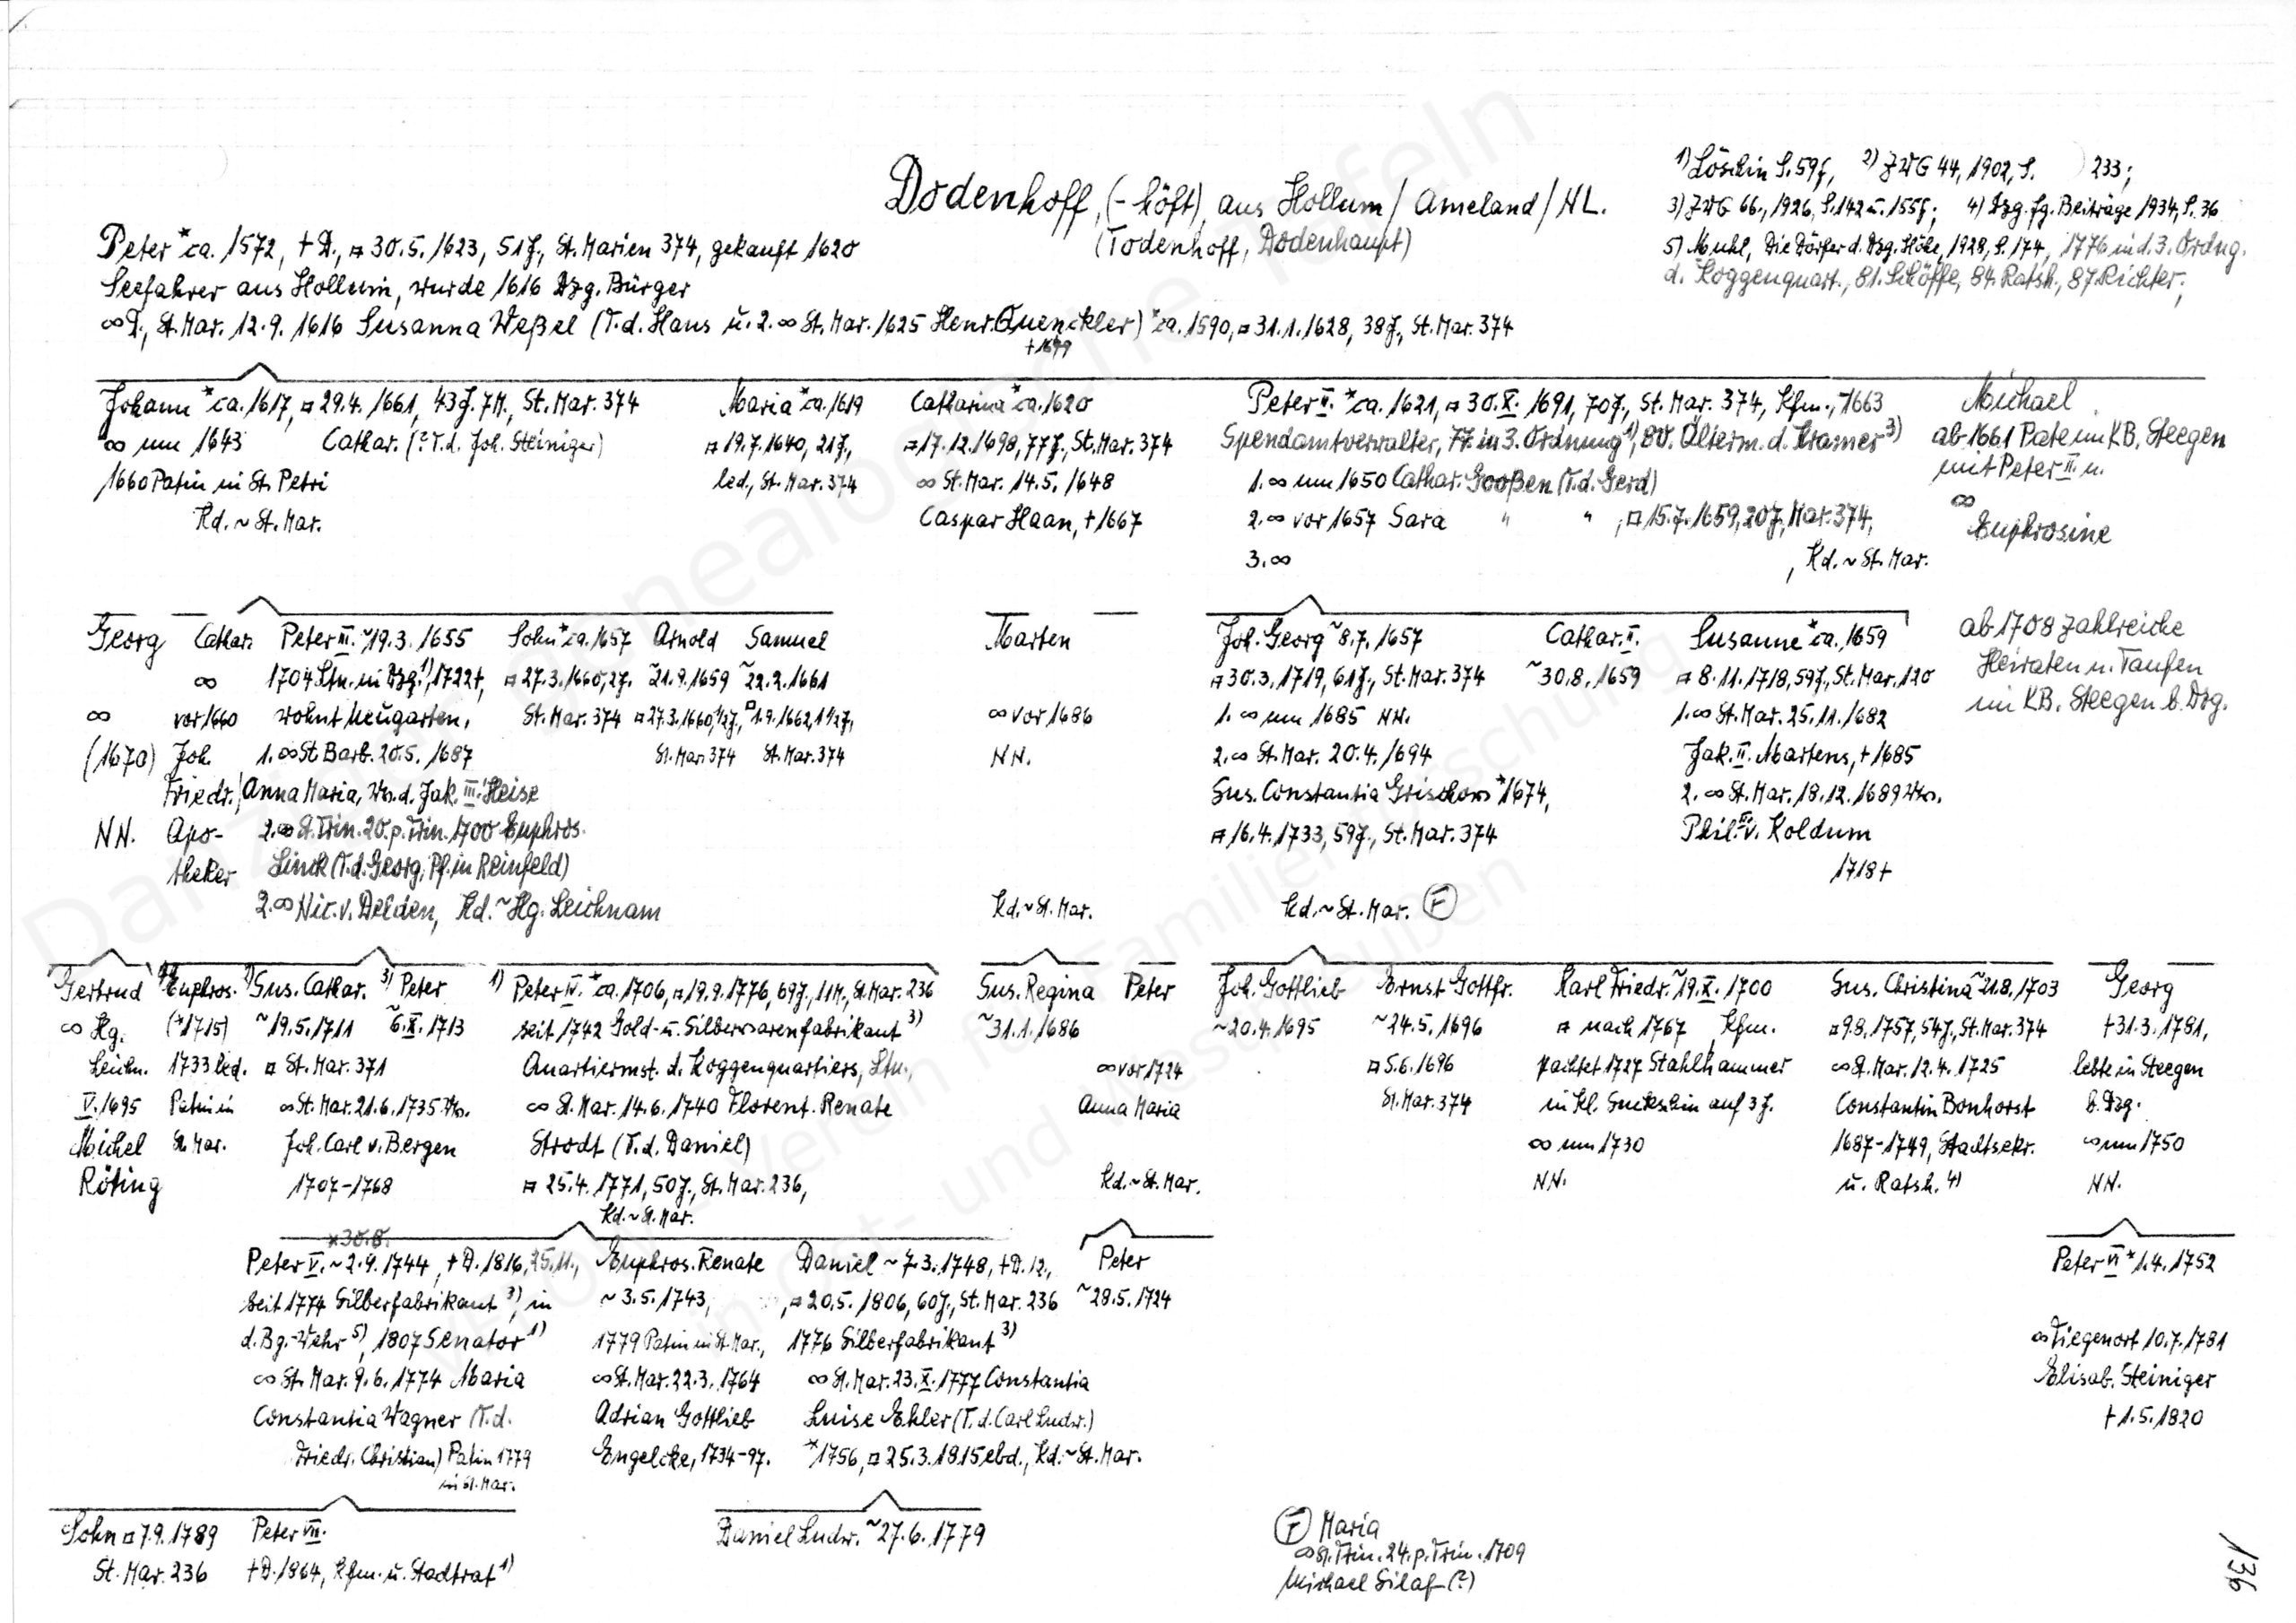 Dodenhoff, (-höft), aus Hollum / Ameland / NL.
(Todenhoff, Dodenhaupt)
1) Löschin S. 59f, 2) ZWG 44, 1902, S. 233;
3) ZWG 66, 1926, S. 142 u. 155f; 4) Dzg. fg. Beiträge 1934, S. 36
5) Muhl, Die Dörfer d. Dzg. Höhe, 1928, S. 174, 1776 in d. 3. Ordng.
d. Koggenquart., 81. Schöffe, 84. Ratsh., 87 Richter;
Peter * ca. 1572, + D., ¤ 30.5.1623, 51 J., St. Marien 374, gekauft 1620
Seefahrer aus Hollum, wurde 1616 Dzg. Bürger
∞ D., St. Mar. 12.9.1616 Susanna Weßel (T.d. Hans u. 2. ∞ St. Mar. 1625 Henr. Quenckler) * ca. 1590, ¤ 31.1.1628, 38 J., St. Mar. 374
Johann * ca. 1617, ¤ 29.4.1661, 43 J. 7 M., St. Mar. 374
∞ um 1643 Cathar. (? T.d. Joh. Steiniger)
1660 Patin in St. Petri
Kd. ~ St. Mar.
Maria * ca. 1619
¤ 19.7.1640, 21 J.,
led., St. Mar. 374
Catharina * ca. 1620
¤ 17.12.1698, 77 J., St. Mar. 374
∞ St. Mar. 14.5.1648
Caspar Haan, + 1667
Peter II. * ca. 1621, ¤ 30.X.1691, 70 J., St. Mar. 374, Kfm., 1663
Spendamtverwalter, 77. in 3. Ordnung 1), 80. Älterm. d. Kramer 3)
1. ∞ um 1650 Cathar. Gooßen (T.d. Gerd)
2. ∞ vor 1657 Sara " " , ¤ 15.7.1659, 20 J., Mar. 374,
3. ∞ , Kd. ~ St. Mar.
Michael
ab 1661 Pate im KB. Steegen
mit Peter II u.
∞
Euphrosine
Georg
∞
(1670)
NN.
Cathar.
∞
vor 1660
Joh.
Friedr.
Apo-
theker
Peter III. ~ 19.3.1655
1704 Ltn. in Dzg. 1), 1722 +,
wohnt Neugarten,
1. ∞ St Barb. 20.5.1687
Anna Maria, Ww. d. Jak. III. Heise
2. ∞ St. Trin. 20. p. Trin. 1700 Euphros.
Linck (T.d. Georg, Pf. in Reinfeld)
2. ∞ Nic. v. Delden, Kd. ~ Hg. Leichnam
Sohn * ca. 1657
¤ 27.3.1660, 2 J.
St. Mar. 374
Arnold
~ 21.9.1659
¤ 27.3.1660, 1/2 J.,
St. Mar. 374
Samuel
~ 22.2.1661
¤ 1.9.1662, 1 1/2 J.,
St. Mar. 374
Marten
∞ vor 1686
NN.
Kd. ~ St. Mar.
Joh. Georg ~ 8.7.1657
¤ 30.3.1719, 61 J., St. Mar. 374
1. ∞ um 1685 NN.
2. ∞ St. Mar. 20.4.1694
Sus. Constantia * 1674,
¤ 16.4.1733, 59 J., St. Mar. 374
Kd. ~ St. Mar. (F)
Cathar. II.
~ 30.8.1659
Susanne * ca. 1659
¤ 8.11.1718, 59 J., St. Mar. 120
1. ∞ St. Mar. 25.11.1682
Jak. II. Martens, + 1685
2. ∞ St. Mar. 18.12.1689 Ww.
Phil. III. v. Koldum
1718 +
ab 1708 zahlreiche
Heiraten u. Taufen
im KB. Steegen b. Dzg.
Gertrud
∞ Hg.
Leichn.
V. 1695
Michel
Röting
Euphros.
(* 1715)
1733 led.
Patin in
St. Mar.
2) Sus. Cathar.
~ 19.5.1711
¤ St. Mar. 371
∞ St. Mar. 21.6.1735 Ww.
Joh. Carl v. Bergen
1707-1768
3) Peter
~ 6.X.1713
1) Peter IV. * ca. 1706, ¤ 19.9.1776, 69 J., 11 M., St. Mar. 236
seit 1742 Gold- u. Silberwarenfabrikant 3)
Quartiermst. d. Koggenquartiers, Ltn.,
∞ St. Mar. 14.6.1740 Florent. Renate
Strodt (T.d. Daniel)
¤ 25.4.1771, 50 J., St. Mar. 236,
Kd. ~ St. Mar.
Sus. Regina
~ 31.1.1686
Peter
∞ vor 1724
Anna Maria
Kd. ~ St. Mar.
Joh. Gottlieb
~ 20.4.1695
Ernst Gottfr.
~ 24.5.1696
¤ 5.6.1696
St. Mar. 374
Karl Friedr. ~ 19.X.1700
¤ nach 1767 Kfm.
pachtet 1727 Stahlhammer
in Kl. auf 3 J.
∞ um 1730
NN.
Sus. Christina ~ 21.8.1703
¤ 9.8.1757, 54 J., St. Mar. 374
∞ St. Mar. 12.4.1725
Constantin Bonhorst
1687-1749, Stadtsekr.
u. Ratsh. 4)
Georg
+ 31.3.1781,
lebte in Steegen
b. Dzg.
∞ um 1750
NN.
* 30.8.
Peter V. ~ 2.9.1744, + D. 1816, 25.11.,
seit 1774 Silberfabrikant 3), in
d. Bg.-Wehr 5), 1807 Senator 1)
∞ St. Mar. 9.6.1774 Maria
Constantia Wagner (T.d.
Friedr. Christian) Patin 1779
in St. Mar.
Euphros. Renate
~ 3.5.1743,
1779 Patin in St. Mar.,
∞ St. Mar. 22.3.1764
Adrian Gottlieb
Engelcke, 1734-97.
Daniel ~ 7.3.1748, + D. 12.,
¤ 20.5.1806, 60 J., St. Mar. 236
1776 Silberfabrikant 3)
∞ St. Mar. 23.X.1777 Constantia
Luise Ehler (T.d. Carl Ludw.)
* 1756, ¤ 25.3.1815 ebd., Kd. ~ St. Mar.
Peter
~ 28.5.1724
Peter VI * 1.4.1752
∞ Tiegenort 10.7.1781
Elisab. Steiniger
+ 1.5.1820
Sohn ¤ 7.9.1789
St. Mar. 236
Peter VII.
+ D. 1864, Kfm. u. Stadtrat 1)
Daniel Ludw. ~ 27.6.1779
(F) Maria
∞ St. Trin. 24. p. Trin. 1709
Michael Silaf (?)
136